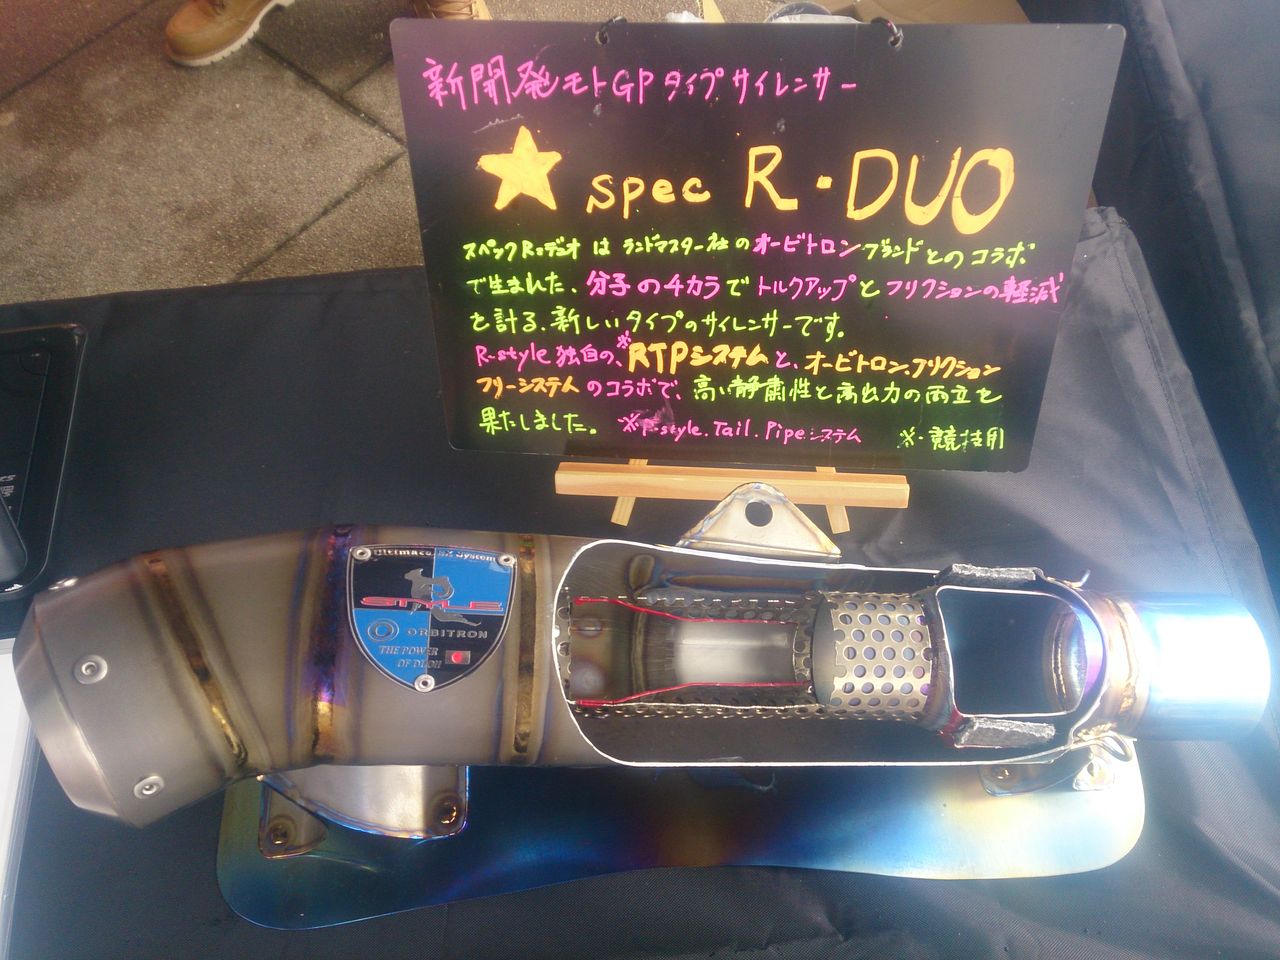 新開発モトGPタイプサイレンサー
★spec R・DUO
スペックRデュオは ランドマスター社のオービトロンブランドとのコラボ
で生まれた、分子のチカラでトルクアップとフリクションの軽減
を計る、新しいタイプのサイレンサーです。
R-style独自の、※RTPシステムと、オービトロン.フリクション
フリーシステムのコラボで、高い静粛性と高出力の両立を
果たしました。 ※R-style.Tail.Pipeシステム ※・競技用
System
STYLE
ORBITRON
THE POWER
OF